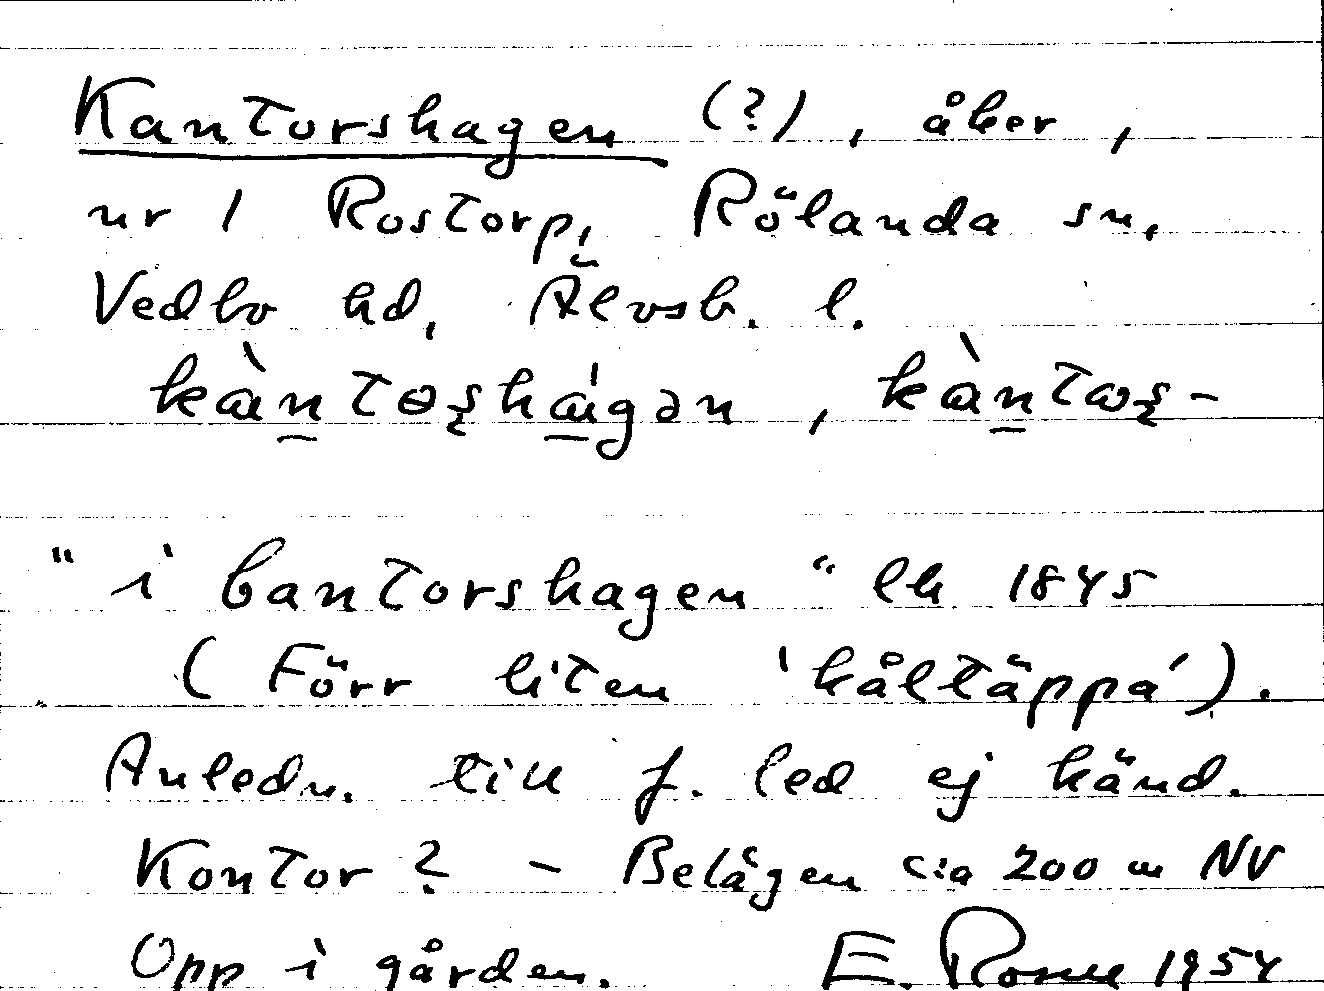 Kantorshagen (?), åker,
nr 1 Rostorp, Rölanda sn,
Vedbo hd, Älvsb. l.
kàntɵʂhágən, kàntɷʂ-
"i Cantorshagen" lh 1845
(Förr liten 'kåltäppa').
Anledn. till f. led ej känd.
Kontor? – Belägen c:a 200 m NV
Opp i gården. E. 1954